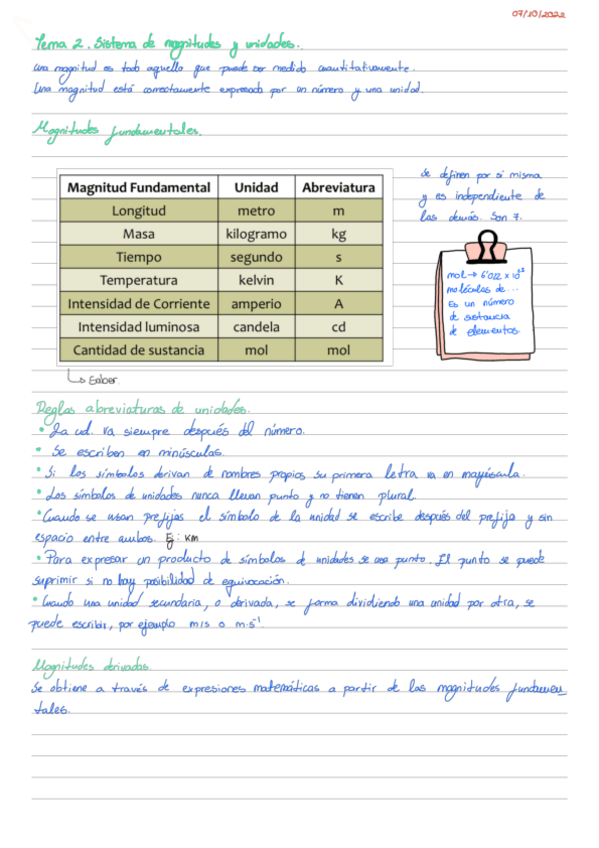 07/10/2022
Tema 2. Sistema de magnitudes y unidades.
Una magnitud es todo aquello que puede ser medido cuantitativamente.
Una magnitud está correctamente expresada por un número y una unidad.
Magnitudes fundamentales.
Magnitud Fundamental Unidad Abreviatura
Longitud metro m
Masa kilogramo kg
Tiempo segundo s
Temperatura kelvin K
Intensidad de Corriente amperio A
Intensidad luminosa candela cd
Cantidad de sustancia mol mol
Saber.
Se definen por si misma
y es independiente de
las demás. Son 7.
mol → 6'022 x 10²³
moléculas de...
Es un número
de sustancia
de elementos.
Reglas abreviaturas de unidades.
• La ud. va siempre después del número.
• Se escriben en minúsculas.
• Si los símbolos derivan de nombres propios su primera letra va en mayúscula.
• Los símbolos de unidades nunca llevan punto y no tienen plural.
• Cuando se usan prefijos el símbolo de la unidad se escribe después del prefijo y sin
espacio entre ambos. Ej: km
• Para expresar un producto de símbolos de unidades se usa punto. El punto se puede
suprimir si no hay posibilidad de equivocación.
• Cuando una unidad secundaria, o derivada, se forma dividiendo una unidad por otra, se
puede escribir, por ejemplo m/s o m·s⁻¹.
Magnitudes derivadas.
Se obtiene a través de expresiones matemáticas a partir de las magnitudes fundamen
tales.